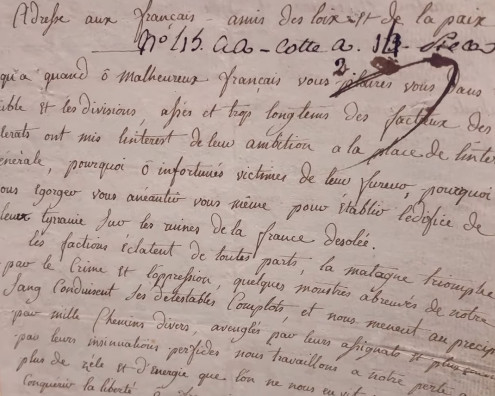 Adresse aux français - amis des loix et de la paix
No 15. aa - Cotte a. 1
2
qu'a quand ô malheureux français vous plairez vous dans
et les divisions, assés et trop longtems des facteux des
lerats ont mis linterest de leur ambition a la place de linte
énérale, pourquoi ô infortunés victimes de leur fureur, pourquoi
ous égorger vous anéantir vous même pour Etablir lédifice de
leur tyranie sur les ruines de la france désolée.
les factions éclatent de toutes parts, la triomphe
par le Crime et loppression, quelques monstres abreuvés de notre
sang Conduisent ses detestables Complots, et nous menent au précip
par mille Chemins divers, aveuglés par leurs assignats et plus
par leurs insinuations perfides nous travaillons a notre perte a
plus de zéle et d'énergie que lon ne nous en vit
Conquérir la liberté